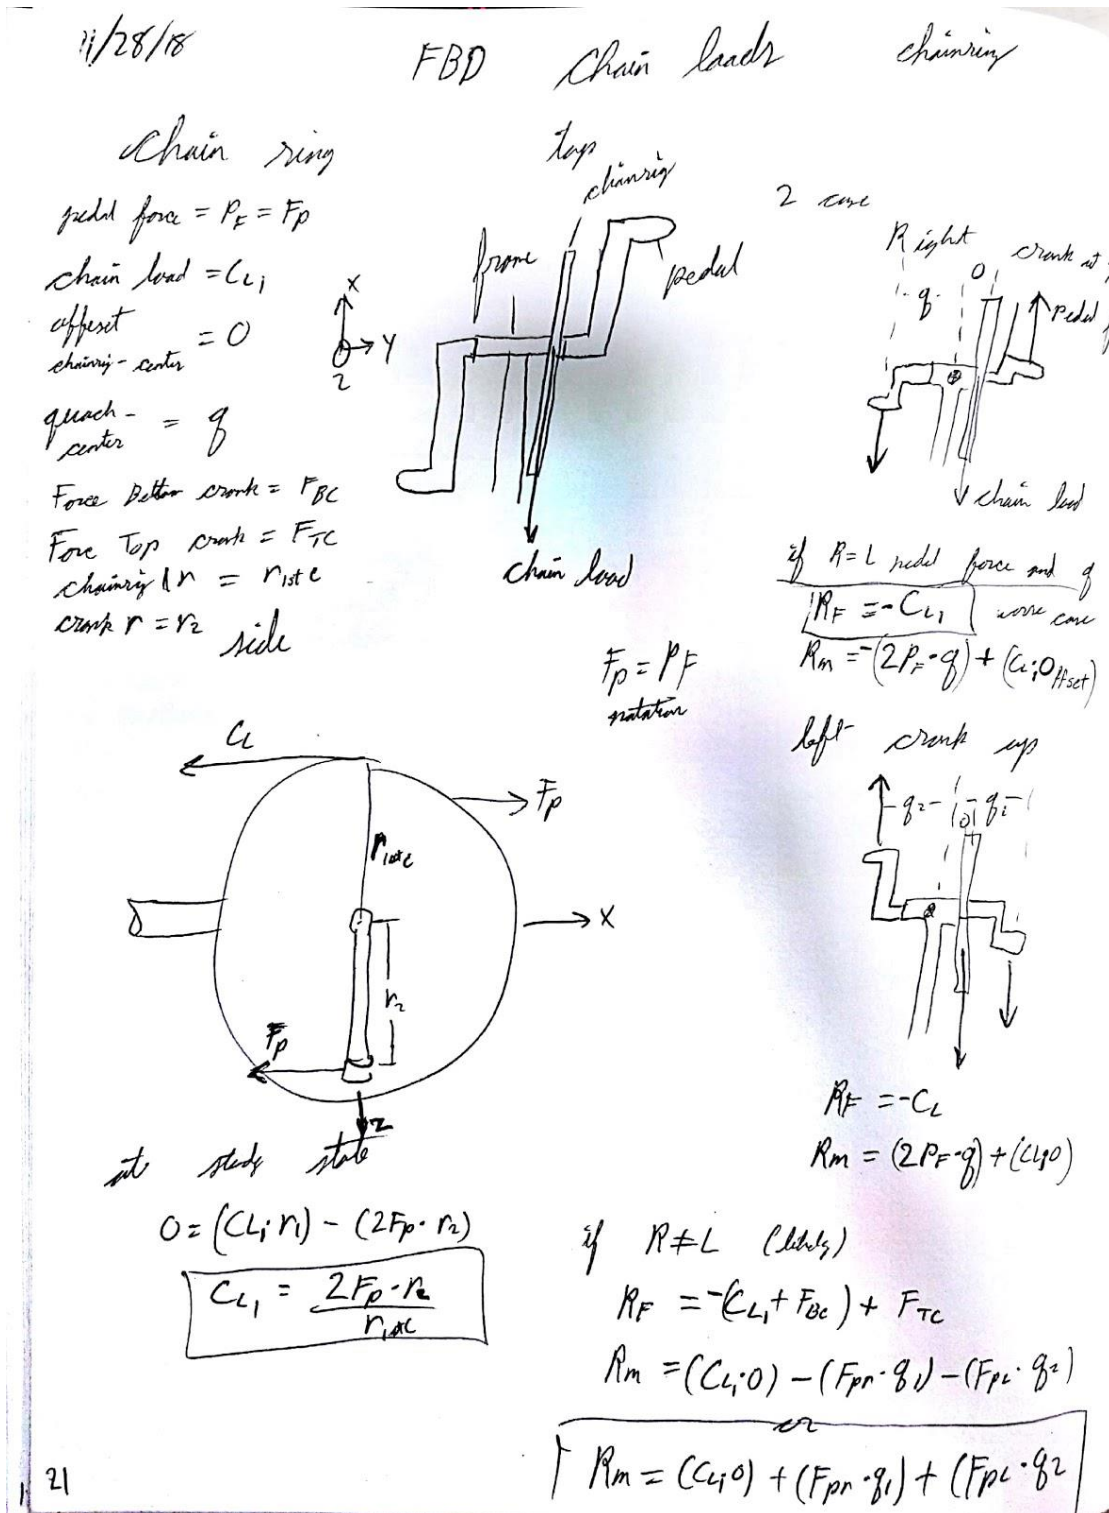 11/28/18
FBD Chain loads chainring
Chain ring
pedal force = PF = Fp
chain load = CL1
offset chainrig-center = O
quach-center = q
Force Bottom crank = FBC
Force Top crank = FTC
chainrig r = r1st c
crank r = r2
side
top
chainrig
frame
pedal
X
Y
Z
chain load
Fp = PF
notation
2 case
Right
crank at
q
O
Pedal
chain load
if R=L pedal force and q
RF = -CL1
worse case
Rm = -(2PF·q) + (CL1·Offset)
left crank up
q2
O
q1
RF = -CL
Rm = (2PF·q) + (CL1·O)
CL
Fp
r1stc
X
r2
Fp
Z
at stedy state
0 = (CL1·r1) - (2Fp·r2)
CL1 = 2Fp·r2 / r1stc
if R≠L (likely)
RF = -(CL1 + FBC) + FTC
Rm = (CL1·O) - (Fpr·q1) - (FpL·q2)
or
Rm = (CL1·O) + (Fpr·q1) + (FpL·q2
21